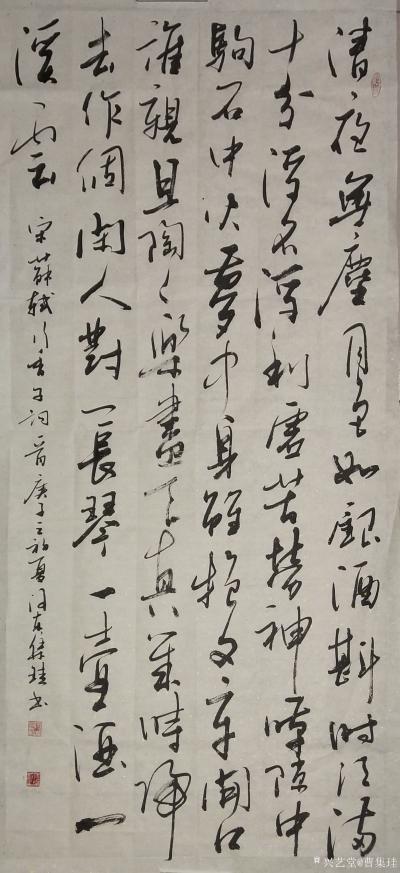 清夜無塵月色如銀酒斟时須满
十分浮名浮利虚苦勞神嘆隙中
駒石中火夢中身雖抱文章開口
誰親且陶々樂盡天真幾時歸
去作個閑人對一長琴一壺酒一
溪雲
宋蘇軾行香子詞一首庚子之初夏集珪书
兴艺堂@曹集珪